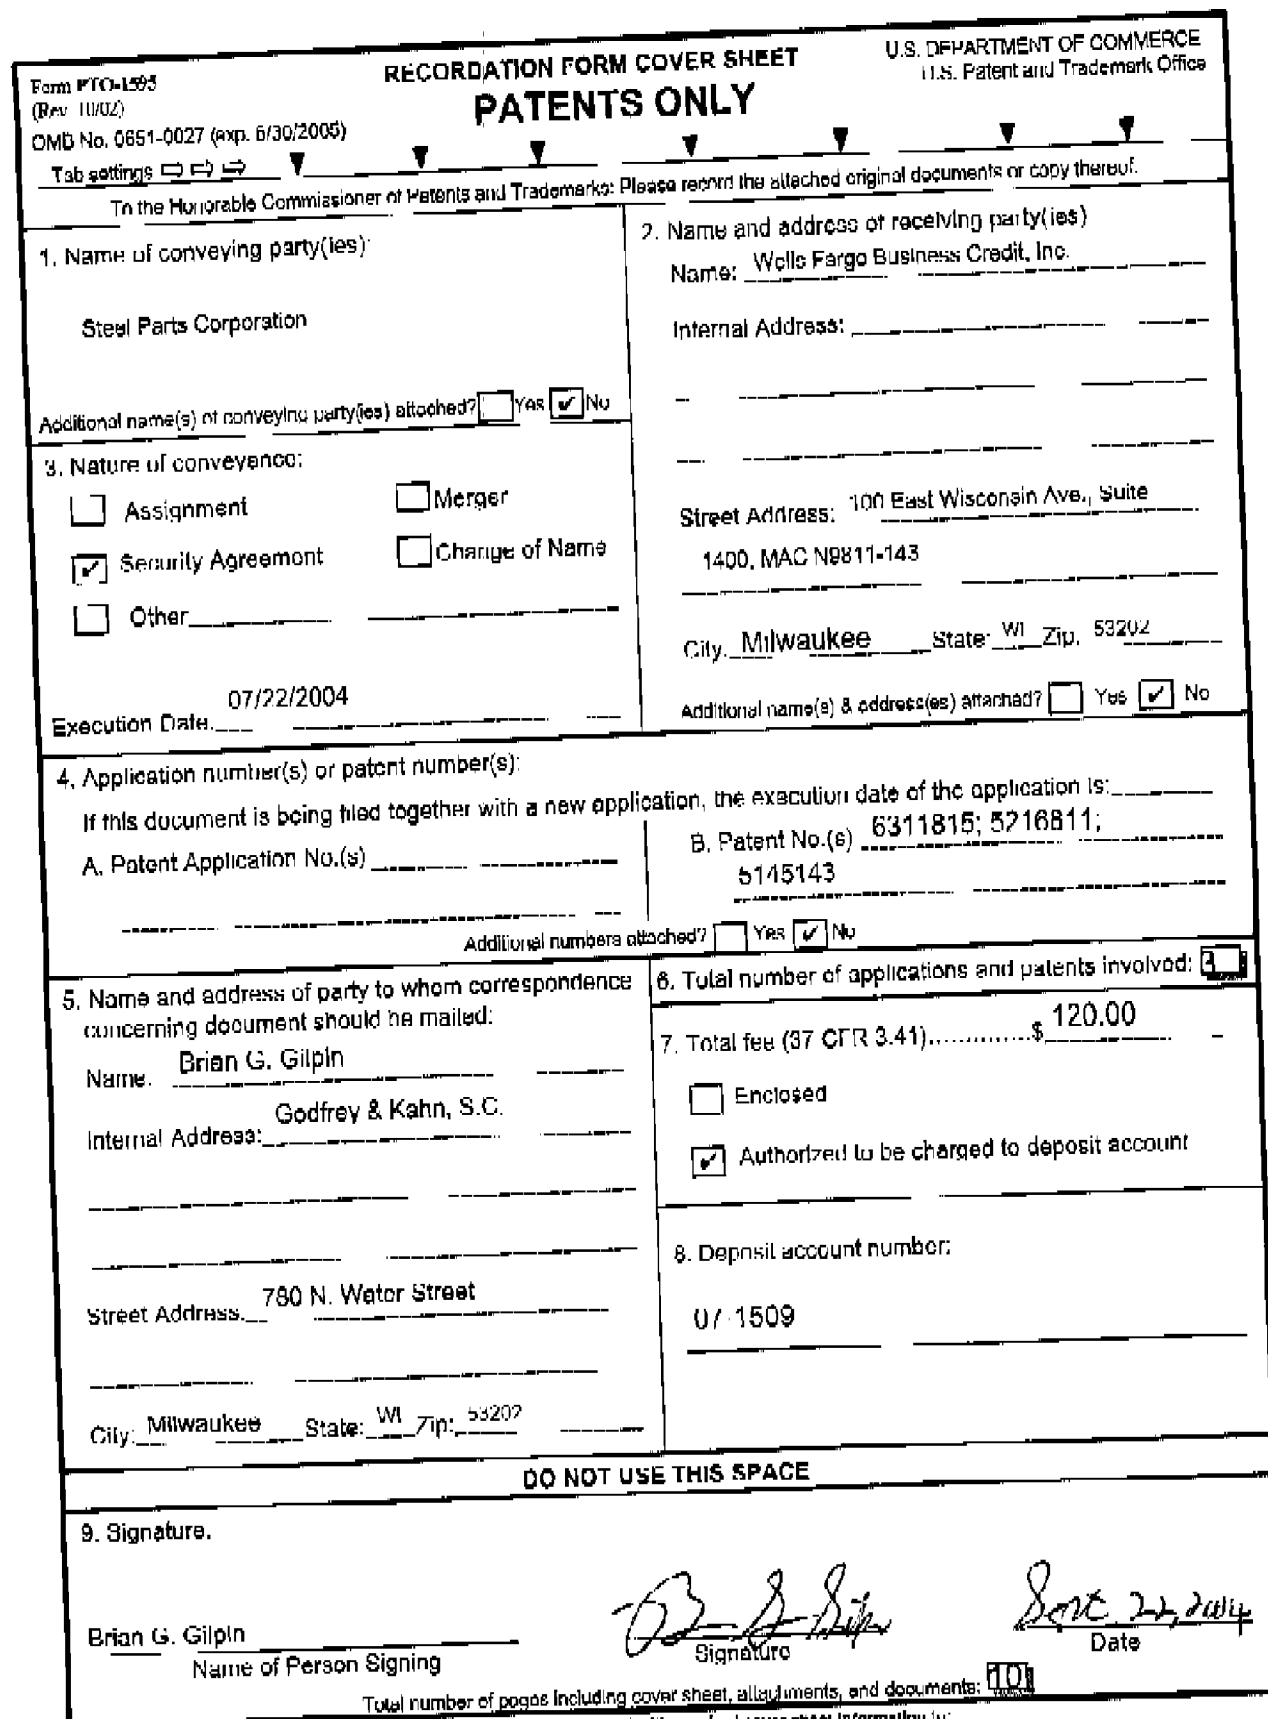 Form PTO-1595
(Rev. 10/02)
OMB No. 0651-0027 (exp. 6/30/2005)
RECORDATION FORM COVER SHEET
PATENTS ONLY
U.S. DEPARTMENT OF COMMERCE
U.S. Patent and Trademark Office
Tab settings
To the Honorable Commissioner of Patents and Trademarks: Please record the attached original documents or copy thereof.
1. Name of conveying party(ies):
Steel Parts Corporation
Additional name(s) of conveying party(ies) attached? Yes ✔ No
2. Name and address of receiving party(ies)
Name: Wells Fargo Business Credit, Inc.
Internal Address:
Street Address: 100 East Wisconsin Ave., Suite
1400, MAC N9811-143
City: Milwaukee State: WI Zip: 53202
Additional name(s) & address(es) attached? Yes ✔ No
3. Nature of conveyance:
Assignment
Merger
✔ Security Agreement
Change of Name
Other
Execution Date: 07/22/2004
4. Application number(s) or patent number(s):
If this document is being filed together with a new application, the execution date of the application is:
A. Patent Application No.(s)
B. Patent No.(s) 6311815; 5216811;
5145143
Additional numbers attached? Yes ✔ No
5. Name and address of party to whom correspondence
concerning document should be mailed:
Name: Brian G. Gilpin
Internal Address: Godfrey & Kahn, S.C.
Street Address: 780 N. Water Street
City: Milwaukee State: WI Zip: 53202
6. Total number of applications and patents involved:
7. Total fee (37 CFR 3.41).............$ 120.00
Enclosed
✔ Authorized to be charged to deposit account
8. Deposit account number:
07-1509
DO NOT USE THIS SPACE
9. Signature.
Brian G. Gilpin
Name of Person Signing
Signature
Sept. 22, 2004
Date
Total number of pages including cover sheet, attachments, and documents: 10